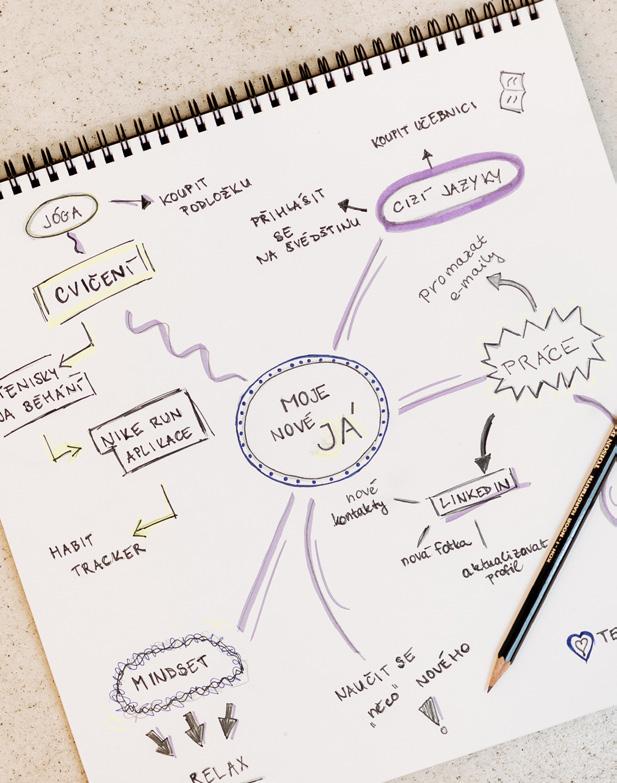 KOUPIT UČEBNICI
CIZÍ JAZYKY
PŘIHLÁSIT
SE
NA ŠVÉDŠTINU
JÓGA
KOUPIT
PODLOŽKU
CVIČENÍ
TENISKY
NA BĚHÁNÍ
NIKE RUN
APLIKACE
HABIT
TRACKER
MOJE
NOVÉ JÁ
Promazat
e-maily
PRÁCE
LINKEDIN
nové
kontakty
nová fotka
aktualizovat
profil
MINDSET
RELAX
NAUČIT SE
"NĚCO" NOVÉHO
KOH-I-NOOR HARDTMUTH
TE